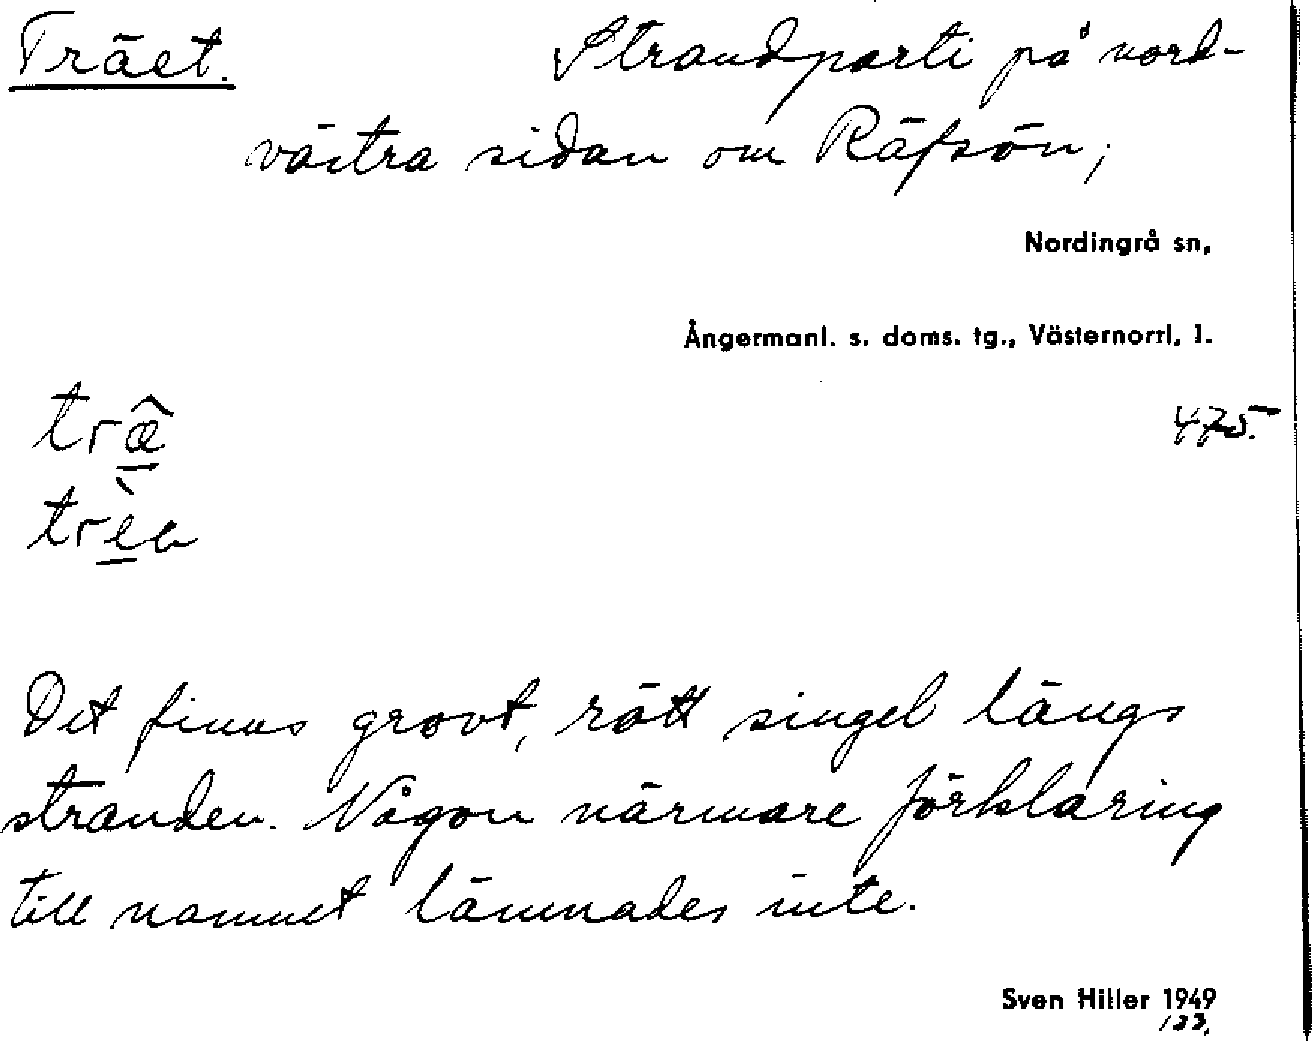 Träet. Strandparti på nord-
västra sidan om Räfsön;
Nordingrå sn,
Ångermanl. s. doms. tg., Västernorrl. l.
475.
Det finns grovt, rött singel längs
stranden. Någon närmare förklaring
till namnet lämnades inte.
Sven Hiller 1949